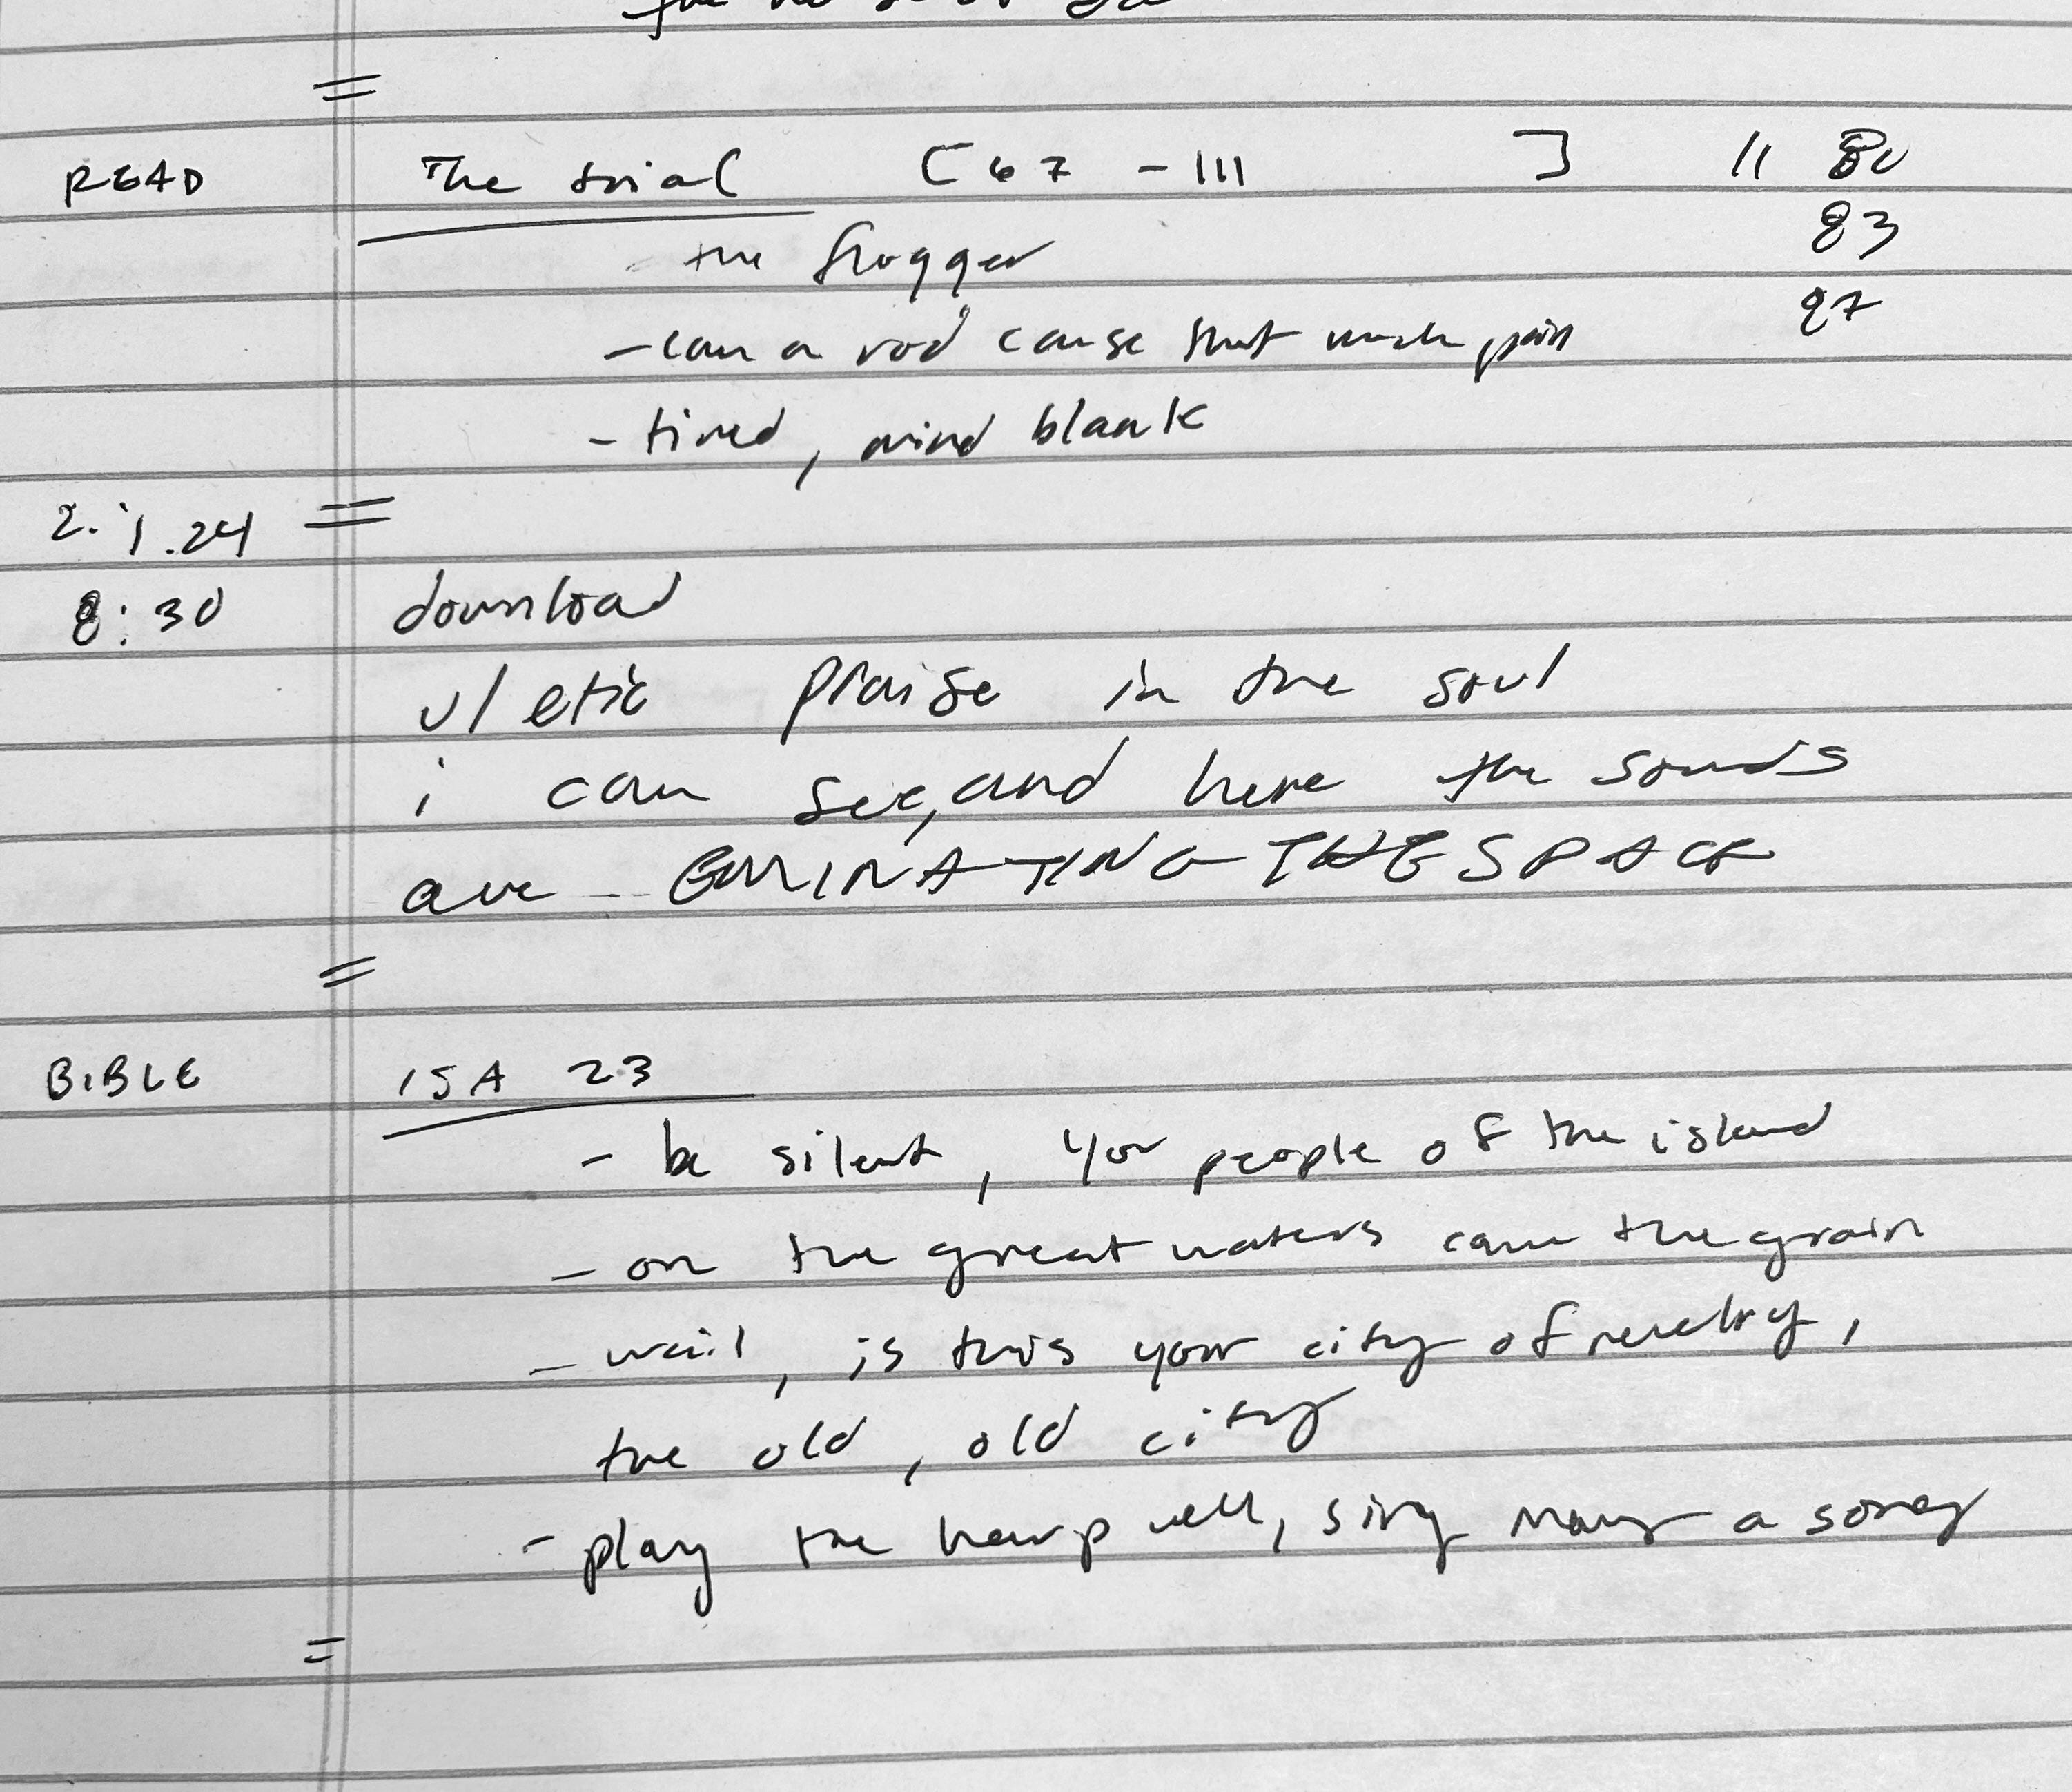 READ The trial [67 - 111 ] // 80
83
- the flogger
87
- can a rod cause that much pain
- tired, mind blank
2.1.24
8:30 download
praise in the soul
i can see, and here the sounds
are EMINATING THE SPACE
BIBLE ISA 23
- be silent, you people of the island
- on the great waters came the grain
- wail, is this your city of revelry,
the old, old city
- play the harp well, sing many a song